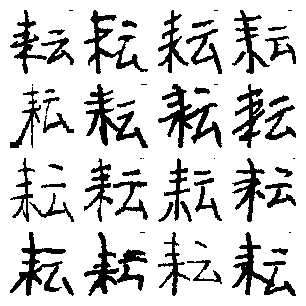 耘耘耘耘
耘耘耘耘
耘耘耘耘
耘耘耘耘